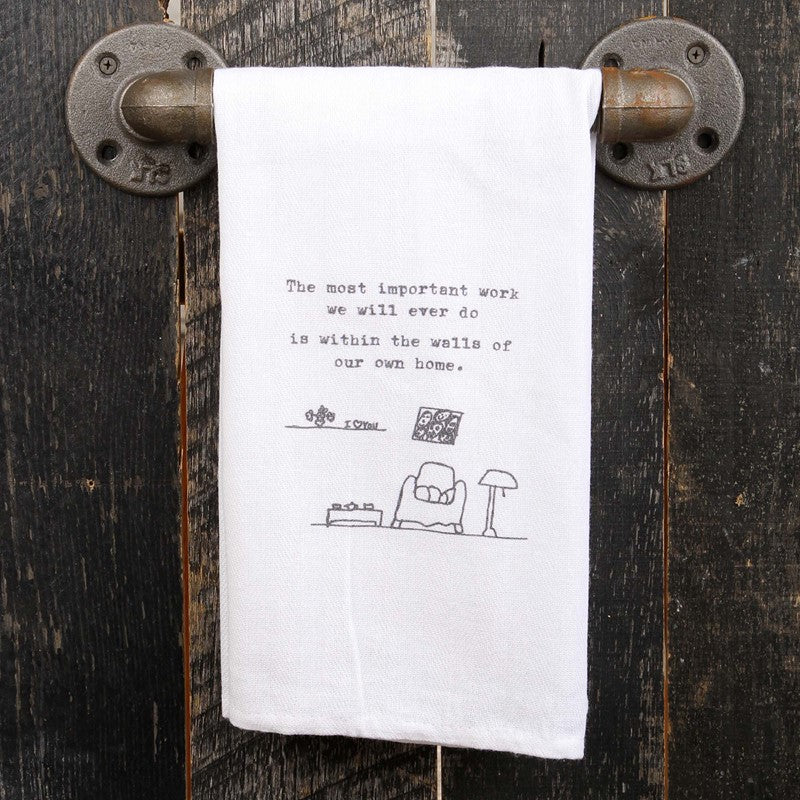 The most important work
we will ever do
is within the walls of
our own home.
I ♡ YOU